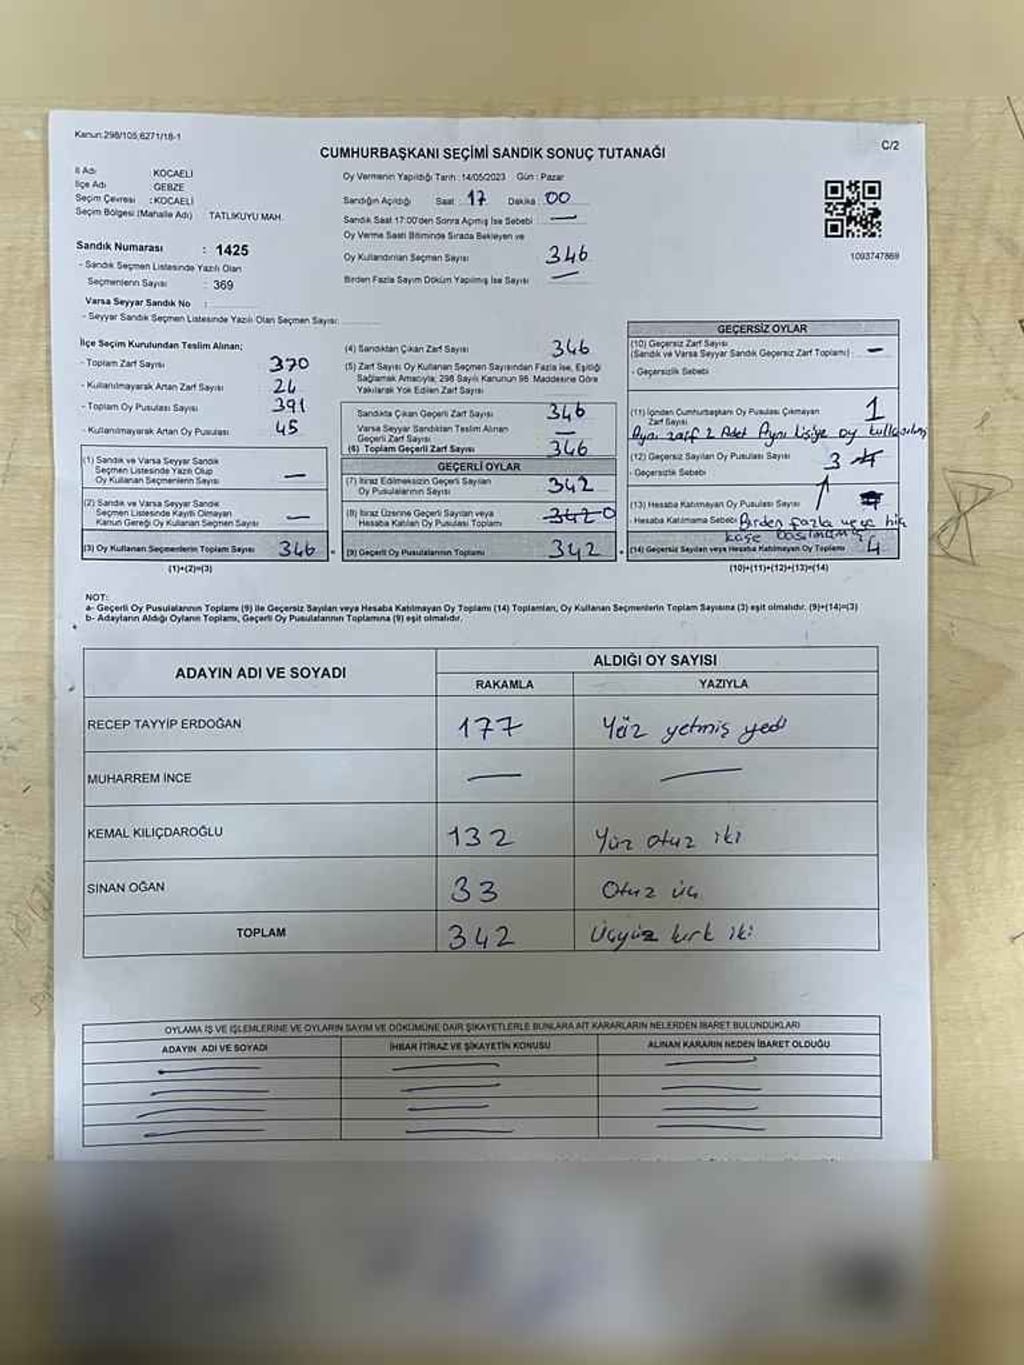 Kanun:298/105;6271/18-1
C/2
CUMHURBAŞKANI SEÇİMİ SANDIK SONUÇ TUTANAĞI
İl Adı KOCAELİ
İlçe Adı GEBZE
Seçim Çevresi : KOCAELİ
Seçim Bölgesi (Mahalle Adı) TATLIKUYU MAH.
Sandık Numarası : 1425
- Sandık Seçmen Listesinde Yazılı Olan
Seçmenlerin Sayısı : 369
Varsa Seyyar Sandık No :
- Seyyar Sandık Seçmen Listesinde Yazılı Olan Seçmen Sayısı:
Oy Vermenin Yapıldığı Tarih : 14/05/2023 Gün : Pazar
Sandığın Açıldığı Saat : 17 Dakika : 00
Sandık Saat 17:00'den Sonra Açılmış İse Sebebi —
Oy Verme Saati Bitiminde Sırada Bekleyen ve
Oy Kullandırılan Seçmen Sayısı 346
Birden Fazla Sayım Döküm Yapılmış İse Sayısı —
1093747869
İlçe Seçim Kurulundan Teslim Alınan;
- Toplam Zarf Sayısı 370
- Kullanılmayarak Artan Zarf Sayısı 24
- Toplam Oy Pusulası Sayısı 391
- Kullanılmayarak Artan Oy Pusulası 45
(1) Sandık ve Varsa Seyyar Sandık
Seçmen Listesinde Yazılı Olup
Oy Kullanan Seçmenlerin Sayısı —
(2) Sandık ve Varsa Seyyar Sandık
Seçmen Listesinde Kayıtlı Olmayan
Kanun Gereği Oy Kullanan Seçmen Sayısı —
(3) Oy Kullanan Seçmenlerin Toplam Sayısı 346
(1)+(2)=(3)
(4) Sandıktan Çıkan Zarf Sayısı 346
(5) Zarf Sayısı Oy Kullanan Seçmen Sayısından Fazla İse, Eşitliği
Sağlamak Amacıyla; 298 Sayılı Kanunun 98. Maddesine Göre
Yakılarak Yok Edilen Zarf Sayısı
Sandıkta Çıkan Geçerli Zarf Sayısı 346
Varsa Seyyar Sandıktan Teslim Alınan
Geçerli Zarf Sayısı —
(6) Toplam Geçerli Zarf Sayısı 346
GEÇERLİ OYLAR
(7) İtiraz Edilmeksizin Geçerli Sayılan
Oy Pusulalarının Sayısı 342
(8) İtiraz Üzerine Geçerli Sayılan veya
Hesaba Katılan Oy Pusulası Toplamı 342 0
(9) Geçerli Oy Pusulalarının Toplamı 342
GEÇERSİZ OYLAR
(10) Geçersiz Zarf Sayısı
(Sandık ve Varsa Seyyar Sandık Geçersiz Zarf Toplamı) —
- Geçersizlik Sebebi
(11) İçinden Cumhurbaşkanı Oy Pusulası Çıkmayan
Zarf Sayısı 1
Aynı zarf 2 Adet Aynı kişiye oy kullanılmış
(12) Geçersiz Sayılan Oy Pusulası Sayısı 3 4
- Geçersizlik Sebebi
(13) Hesaba Katılmayan Oy Pusulası Sayısı
- Hesaba Katılmama Sebebi Birden fazla veya hiç
kaşe basılmamış
(14) Geçersiz Sayılan veya Hesaba Katılmayan Oy Toplamı 4
(10)+(11)+(12)+(13)=(14)
NOT:
a- Geçerli Oy Pusulalarının Toplamı (9) ile Geçersiz Sayılan veya Hesaba Katılmayan Oy Toplamı (14) Toplamları, Oy Kullanan Seçmenlerin Toplam Sayısına (3) eşit olmalıdır. (9)+(14)=(3)
b- Adayların Aldığı Oyların Toplamı, Geçerli Oy Pusulalarının Toplamına (9) eşit olmalıdır.
ADAYIN ADI VE SOYADI ALDIĞI OY SAYISI
RAKAMLA YAZIYLA
RECEP TAYYİP ERDOĞAN 177 Yüz yetmiş yedi
MUHARREM İNCE — —
KEMAL KILIÇDAROĞLU 132 Yüz otuz iki
SİNAN OĞAN 33 Otuz üç
TOPLAM 342 Üçyüz kırk iki
OYLAMA İŞ VE İŞLEMLERİNE VE OYLARIN SAYIM VE DÖKÜMÜNE DAİR ŞİKAYETLERLE BUNLARA AİT KARARLARIN NELERDEN İBARET BULUNDUKLARI
ADAYIN ADI VE SOYADI İHBAR İTİRAZ VE ŞİKAYETİN KONUSU ALINAN KARARIN NEDEN İBARET OLDUĞU